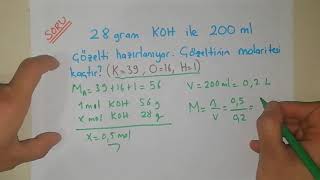 SORU
28 gram KOH ile 200 ml
Çözelti hazırlanıyor. Çözeltinin molaritesi
kaçtır? (K=39, O=16, H=1)
MA = 39+16+1 = 56
1 mol KOH 56 g
x mol KOH 28 g
x = 0,5 mol
V = 200 ml = 0,2 L
M = n/V = 0,5/0,2 =